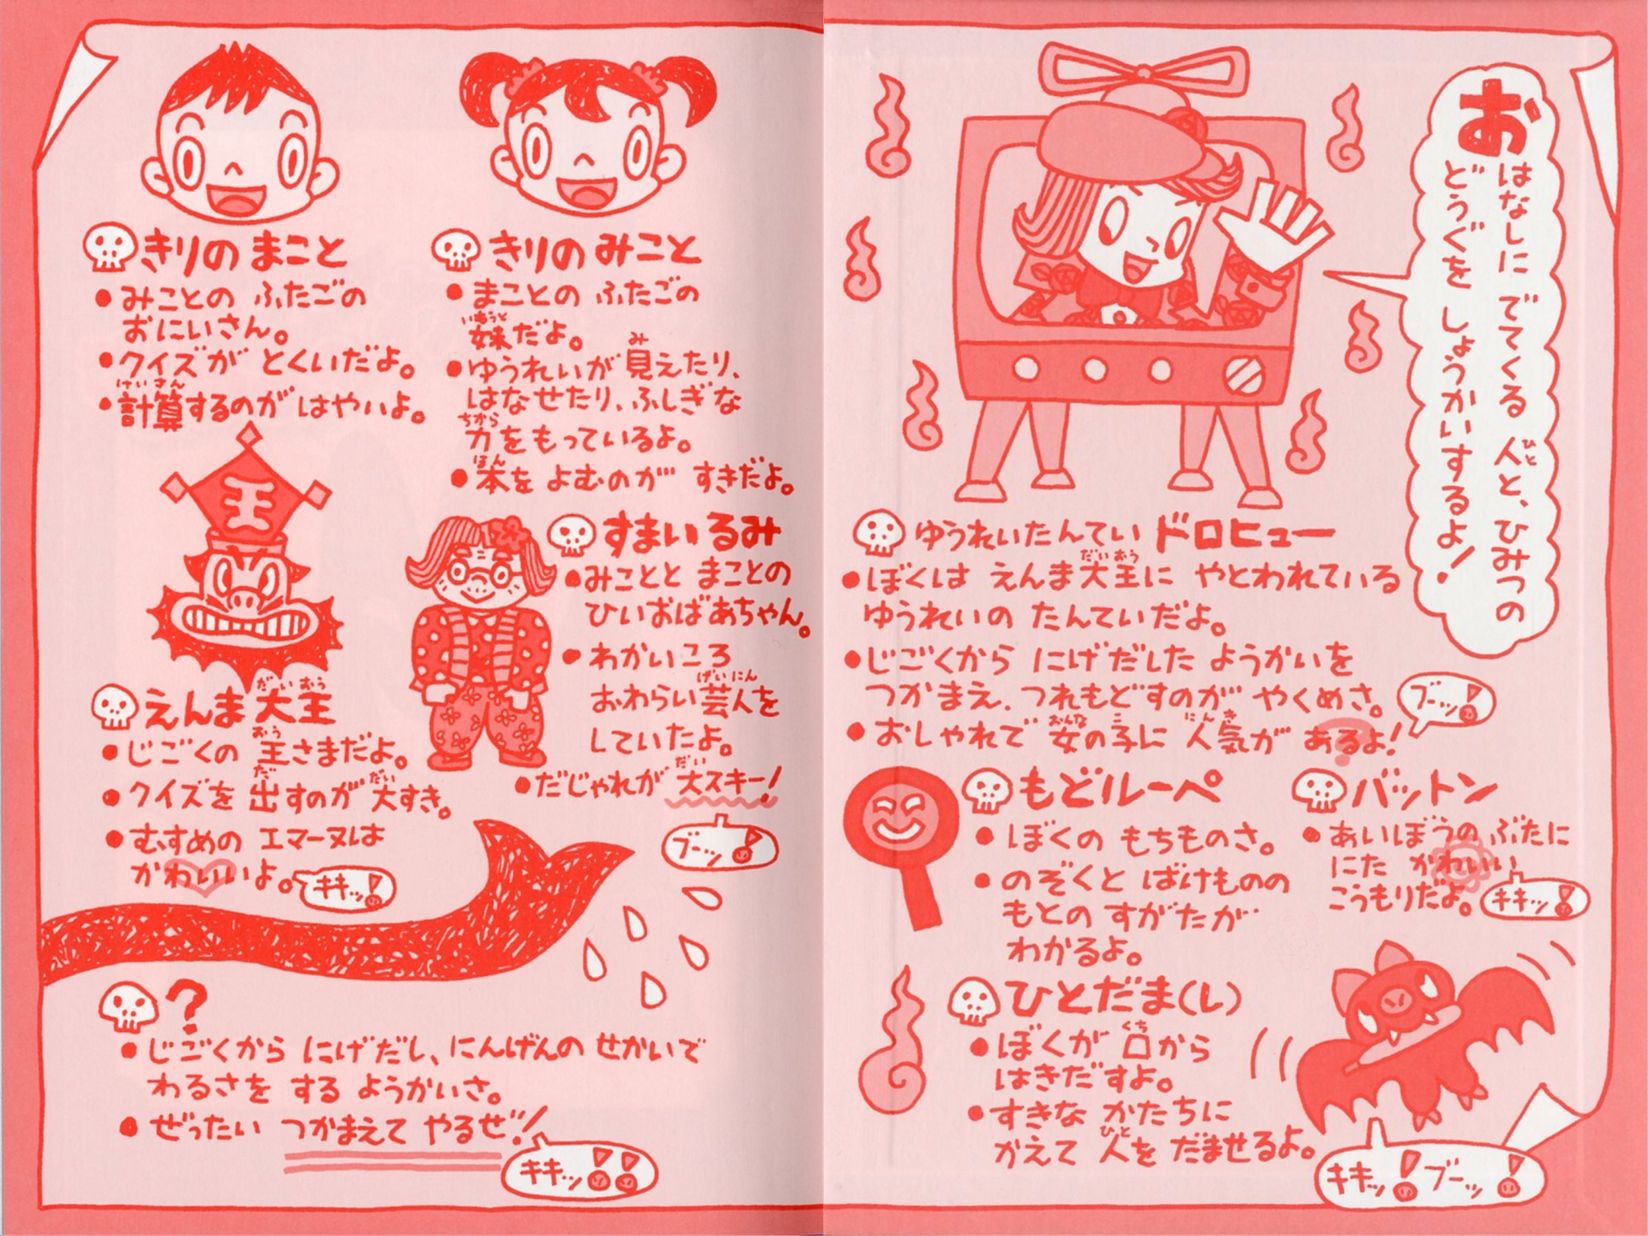 おはなしに でてくる 人と、ひみつの
どうぐを しょうかいするよ!
ゆうれいたんてい ドロヒュー
●ぼくは えんま大王に やとわれている
ゆうれいの たんていだよ。
●じごくから にげだした ようかいを
つかまえ、つれもどすのが やくめさ。
●おしゃれで 女の子に 人気が あるよ!
ブーッ!
もどルーペ
●ぼくの もちものさ。
●のぞくと ばけものの
もとの すがたが
わかるよ。
バットン
●あいぼうの ぶたに
にた かわいい
こうもりだよ。
キキッ!
ひとだま(し)
●ぼくが 口から
はきだすよ。
●すきな かたちに
かえて 人を だませるよ。
キキッ!ブーッ!
きりの まこと
●みことの ふたごの
おにいさん。
●クイズが とくいだよ。
●計算するのが はやいよ。
きりの みこと
●まことの ふたごの
妹だよ。
●ゆうれいが 見えたり、
はなせたり、ふしぎな
力をもっているよ。
●本を よむのが すきだよ。
王
えんま大王
●じごくの 王さまだよ。
●クイズを 出すのが 大すき。
●むすめの エマーヌは
かわいいよ。
キキッ!
すまい るみ
●みことと まことの
ひいおばあちゃん。
●わかいころ
おわらい芸人を
していたよ。
●だじゃれが 大スキー!
ブーッ!
?
●じごくから にげだし、にんげんの せかいで
わるさを する ようかいさ。
●ぜったい つかまえて やるぜ!!
キキッ!!